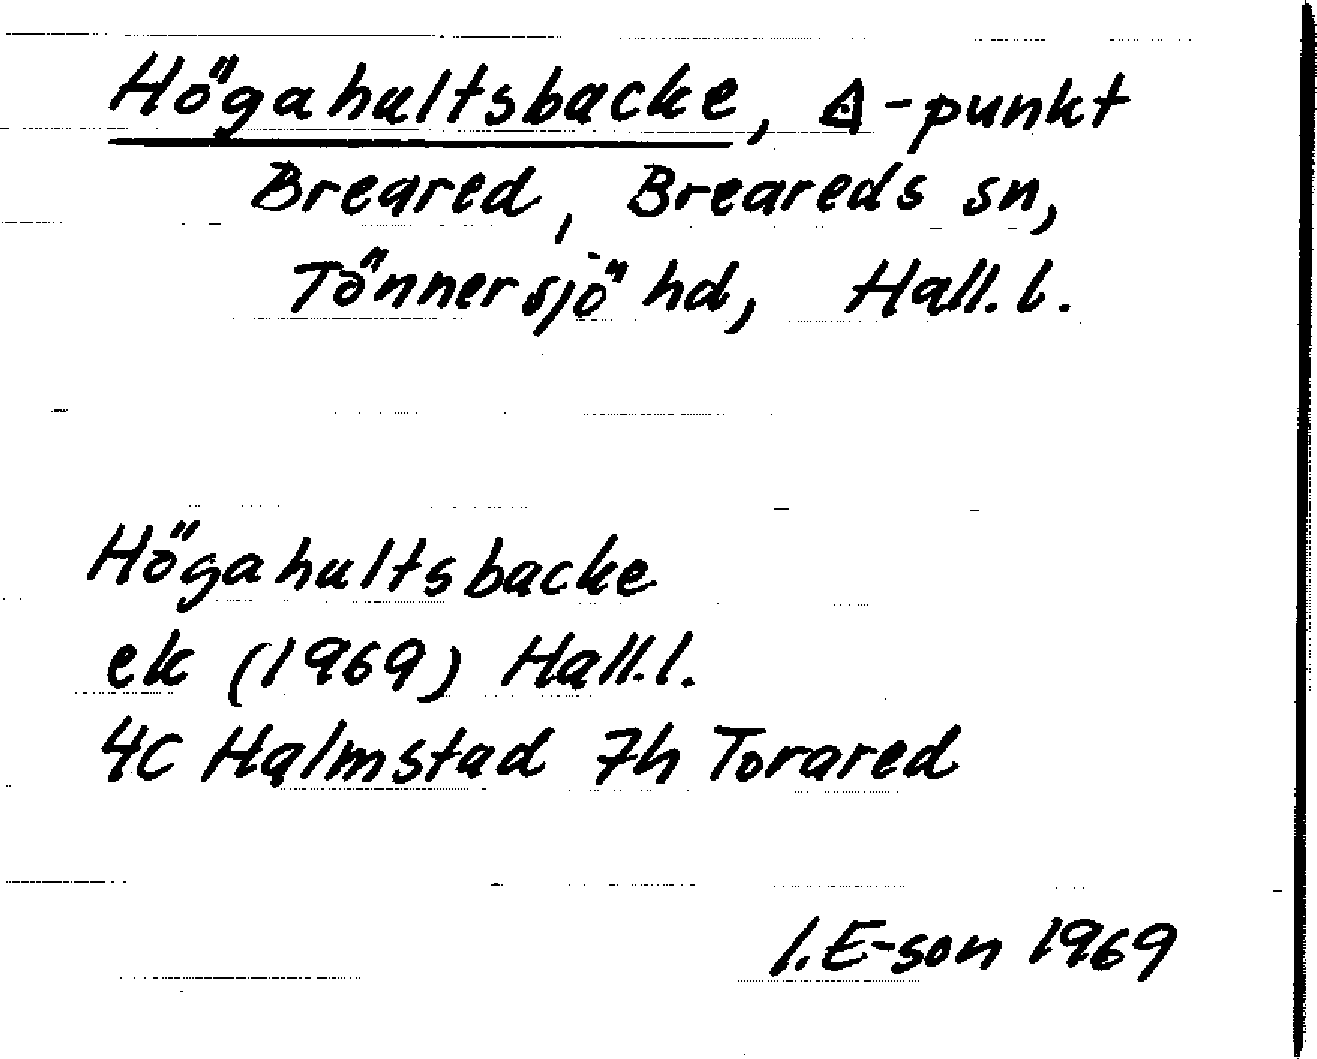 Högahultsbacke, △-punkt
Breared, Breareds sn,
Tönnersjö hd, Hall. l.
Högahultsbacke
ek (1969) Hall.l.
4C Halmstad 7h Torared
I.E-son 1969